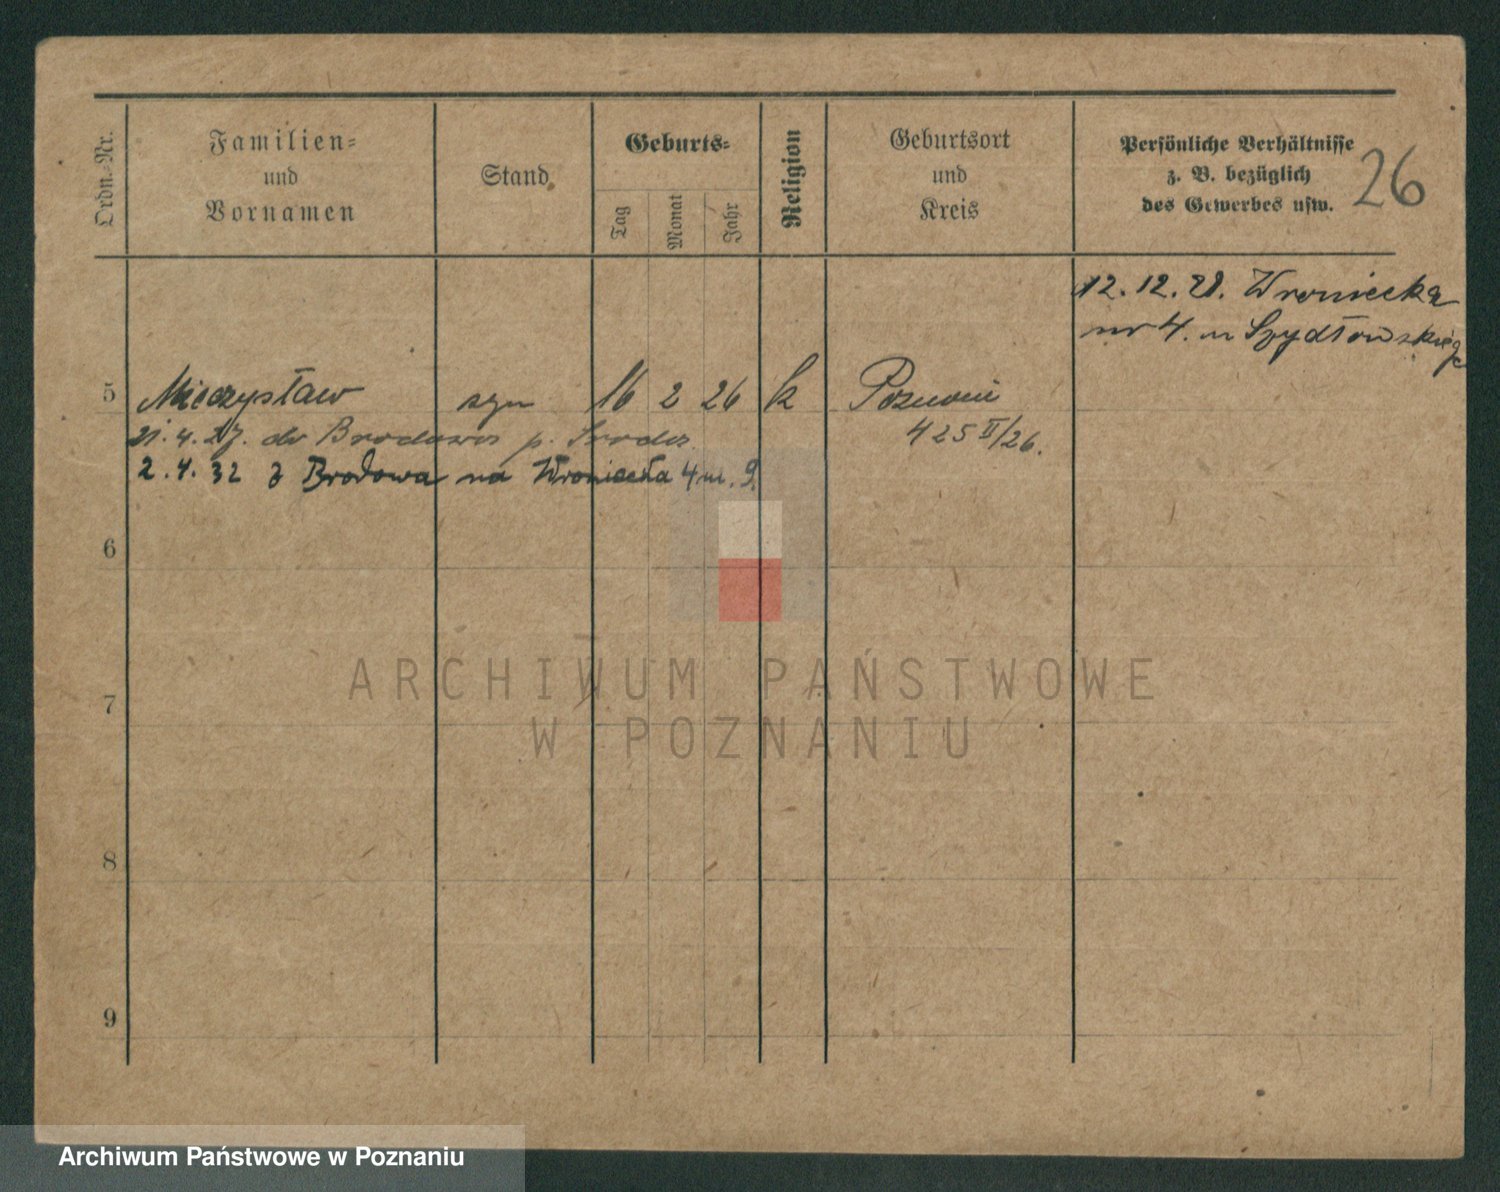 Ordn.-Nr.
Familien-
und
Vornamen
Stand
Geburts-
Tag
Monat
Jahr
Religion
Geburtsort
und
Kreis
Persönliche Verhältnisse
z. B. bezüglich
des Gewerbes usw.
26
12.12.28. Wroniecka
nr 4. m Szydłowskiego
5 Mieczysław syn 16 2 26 k Poznań
21.4.27. do Brodowa p. Środa 425 II/26.
2.4.32 z Brodowa na Wroniecka 4 m. 9.
6
7
8
9
ARCHIWUM PAŃSTWOWE
W POZNANIU
Archiwum Państwowe w Poznaniu